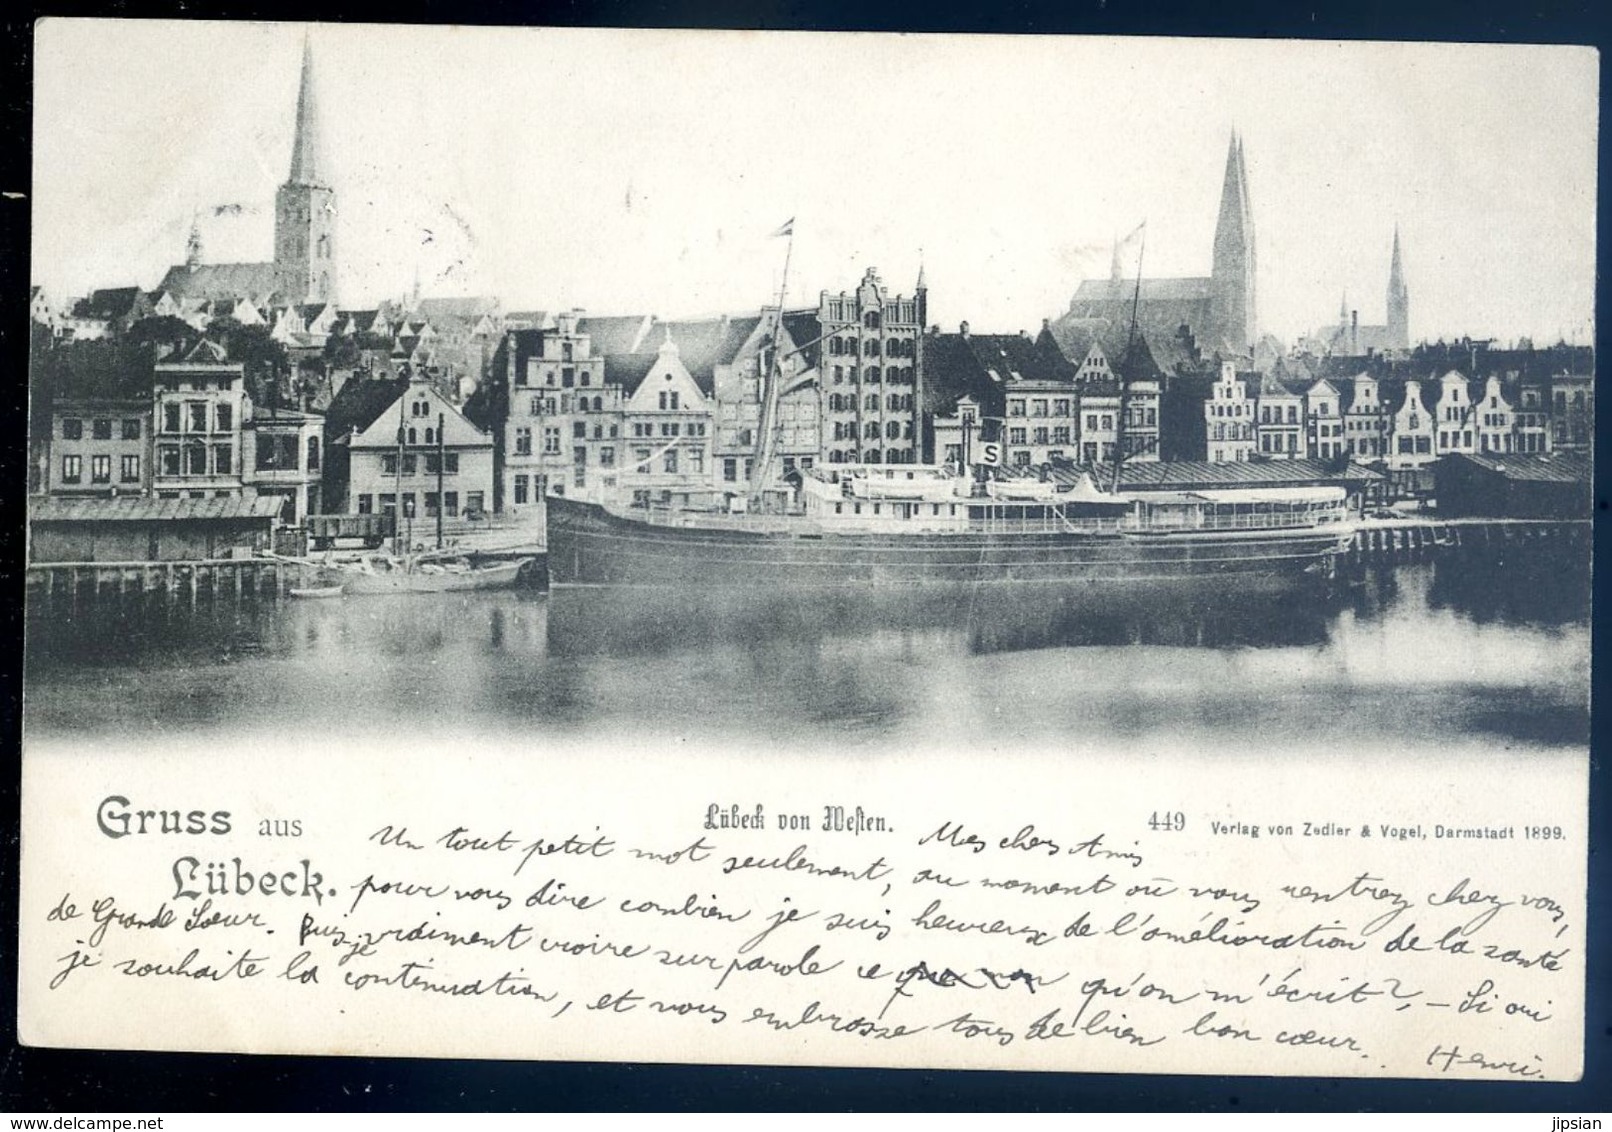 S
Gruss aus
Lübeck.
Lübeck von Westen.
449 Verlag von Zedler & Vogel, Darmstadt 1899.
Mes chers Amis
Un tout petit mot seulement, au moment où vous rentrez chez vous,
pour vous dire combien je suis heureux de l'amélioration de la santé
de Grande Sœur. Puis-je vraiment croire sur parole ce qu'on m'écrit?, — Si oui
je souhaite la continuation, et vous embrasse tous de bien bon cœur.
Henri.
jipsian